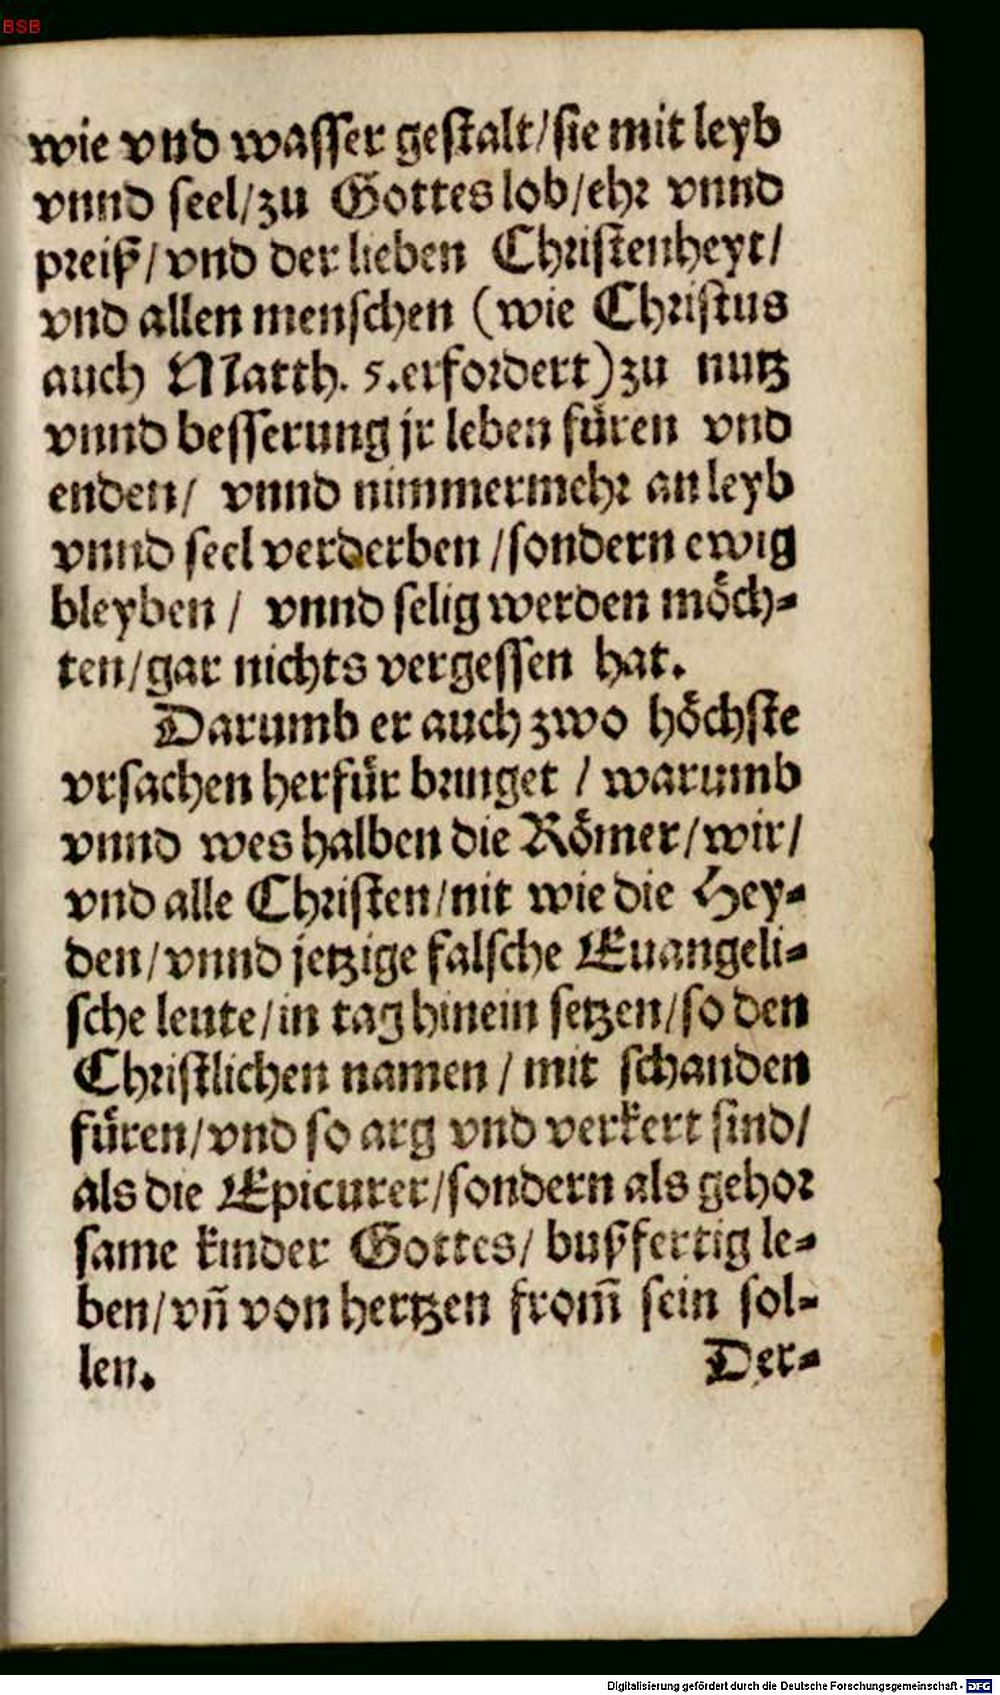 BSB
wie vnd wasser gestalt/sie mit leyb
vnnd seel/zu Gottes lob/ehr vnnd
preiß/vnd der lieben Christenheyt/
vnd allen menschen (wie Christus
auch Matth. 5.erfordert)zu nutz
vnnd besserung jr leben füren vnd
enden/ vnnd nimmermehr an leyb
vnnd seel verderben /sondern ewig
bleyben / vnnd selig werden möch-
ten/gar nichts vergessen hat.
Darumb er auch zwo höchste
vrsachen herfür bringet / warumb
vnnd wes halben die Römer/wir/
vnd alle Christen/nit wie die Hey-
den/vnnd jetzige falsche Euangeli-
sche leute/in tag hinein setzen/so den
Christlichen namen / mit schanden
füren/vnd so arg vnd verkert sind/
als die Epicurer/sondern als gehor
same kinder Gottes/ bußfertig le-
ben/vñ von hertzen from̃ sein sol-
len.
Der-
Digitalisierung gefördert durch die Deutsche Forschungsgemeinschaft - DFG